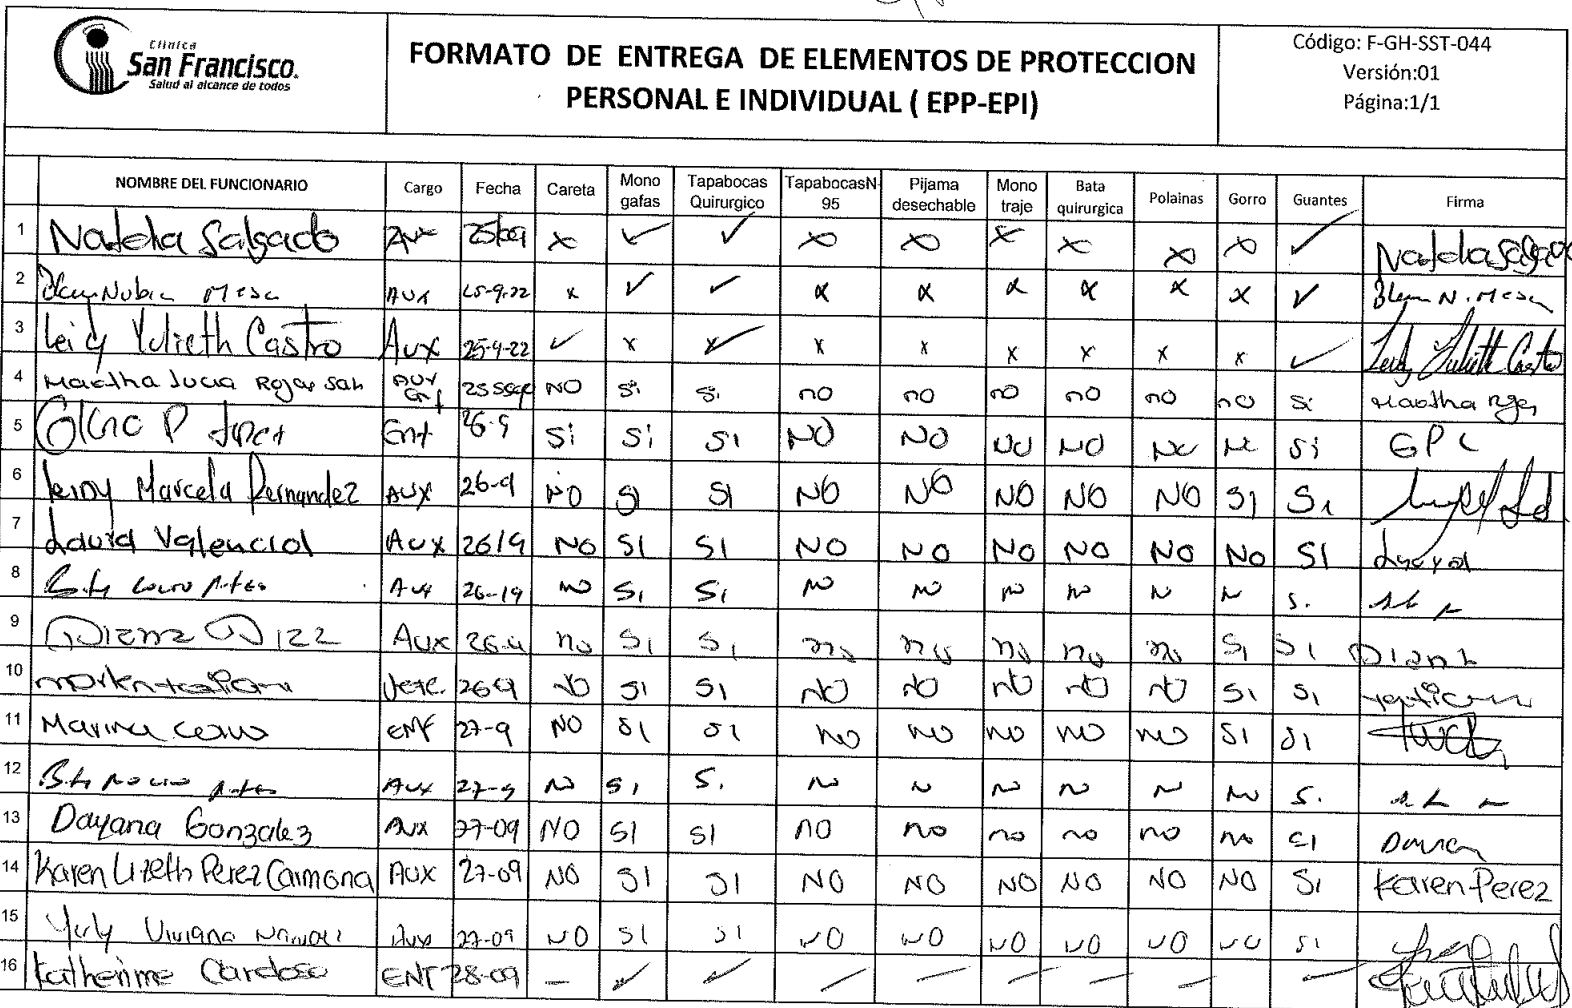 Clínica
San Francisco.
Salud al alcance de todos
FORMATO DE ENTREGA DE ELEMENTOS DE PROTECCION
PERSONAL E INDIVIDUAL ( EPP-EPI)
Código: F-GH-SST-044
Versión:01
Página:1/1
NOMBRE DEL FUNCIONARIO Cargo Fecha Careta Mono gafas Tapabocas Quirurgico TapabocasN-95 Pijama desechable Mono traje Bata quirurgica Polainas Gorro Guantes Firma
1 Natalia Salgado Aux 25/09 x ✓ ✓ x x x x x x ✓ Natalia Salgado
2 Nubia Mesa Aux 25-9-22 x ✓ ✓ x x x x x x ✓ N. Mesa
3 Leidy Yulieth Castro Aux 25-9-22 ✓ x ✓ x x x x x x ✓ Leidy Yulieth Castro
4 Martha Lucia Rojas San Aux Enf 25 Sep NO Si Si no no no no no no Si Martha Rojas
5 P Enf 26-9 Si Si Si NO NO NO NO NO NO Si GPL
6 Marcela Fernandez AUX 26-9 NO SI SI NO NO NO NO NO SI Si
7 Laura Valencia Aux 26/9 NO SI SI NO NO NO NO NO NO SI
8 Aux 26-19 no Si Si no no no no N N S.
9 Diana Diaz Aux 26-9 no Si Si no no no no no Si Si Diana
10 26-9 NO SI SI NO NO NO NO NO SI SI
11 Marina ENF 27-9 NO SI SI NO NO NO NO NO SI SI
12 Aux 27-9 N Si S. N N N N N no S.
13 Dayana Gonzalez Aux 27-09 NO SI SI NO no no no no no SI
14 Karen Lizeth Perez Carmona Aux 27-09 NO SI SI NO NO NO NO NO NO SI Karen Perez
15 Yuly Viviana Aux 27-09 NO SI SI NO NO NO NO NO NO SI
16 Katherinne Cardoso ENF 28-09 – ✓ ✓ – – – – – – –